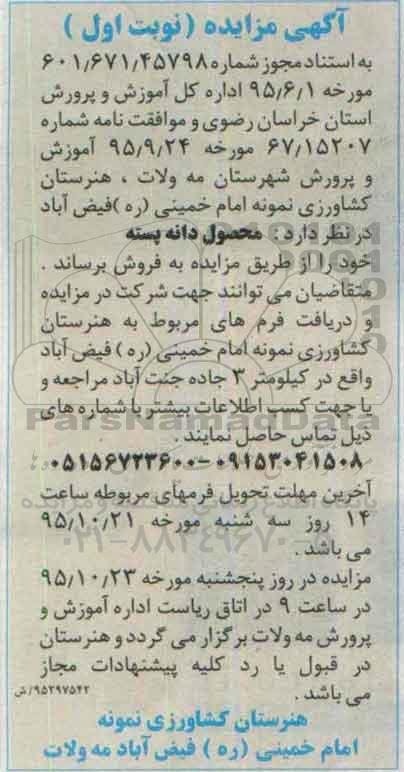 آگهی مزایده ( نوبت اول )
به استناد مجوز شماره ۶۰۱٫۶۷۱٫۴۵۷۹۸
مورخه ۹۵٫۶٫۱ اداره کل آموزش و پرورش
استان خراسان رضوی و موافقت نامه شماره
۶۷٫۱۵۲۰۷ مورخه ۹۵٫۹٫۲۴ آموزش
و پرورش شهرستان مه ولات ، هنرستان
کشاورزی نمونه امام خمینی (ره )فیض آباد
در نظر دارد : محصول دانه پسته
خود را از طریق مزایده به فروش برساند .
متقاضیان می توانند جهت شرکت در مزایده
و دریافت فرم های مربوط به هنرستان
کشاورزی نمونه امام خمینی (ره ) فیض آباد
واقع در کیلومتر ۳ جاده جنت آباد مراجعه و
یا جهت کسب اطلاعات بیشتر با شماره های
ذیل تماس حاصل نمایند .
۰۵۱۵۶۷۲۳۶۰۰-۰۹۱۵۳۰۴۱۵۰۸
آخرین مهلت تحویل فرمهای مربوطه ساعت
۱۴ روز سه شنبه مورخه ۹۵٫۱۰٫۲۱
می باشد .
مزایده در روز پنجشنبه مورخه ۹۵٫۱۰٫۲۳
در ساعت ۹ در اتاق ریاست اداره آموزش و
پرورش مه ولات برگزار می گردد و هنرستان
در قبول یا رد کلیه پیشنهادات مجاز
می باشد .
۹۵۲۹۷۵۴۲/ش
هنرستان کشاورزی نمونه
امام خمینی (ره ) فیض آباد مه ولات
ParsNamadData
۰۲۱-۸۸۳۴۹۶۷۰-۵